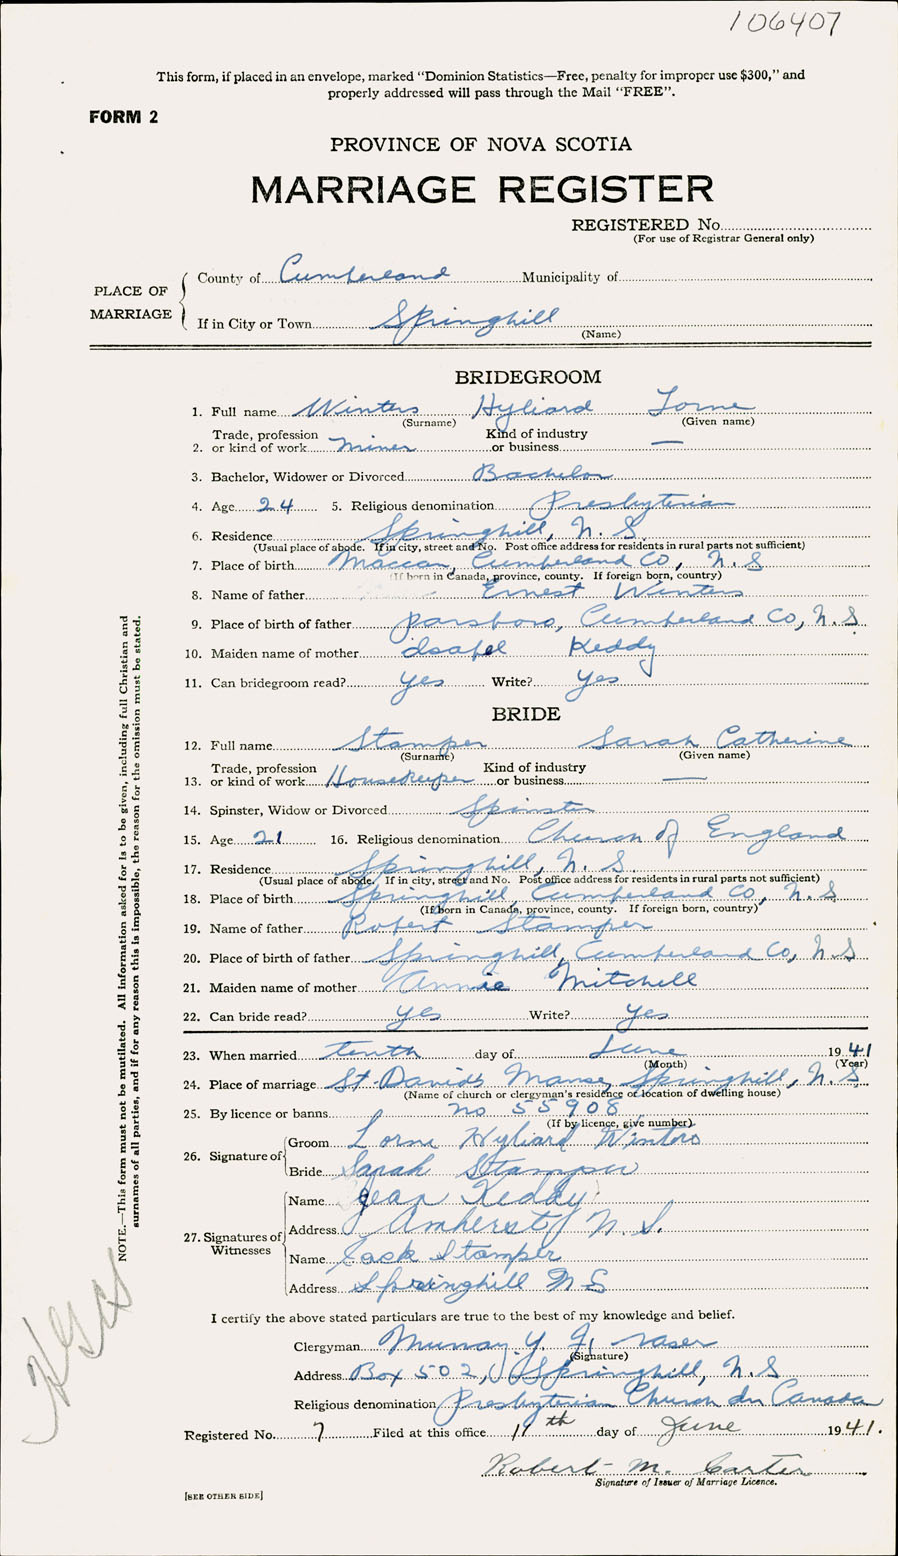 106407
This form, if placed in an envelope, marked “Dominion Statistics—Free, penalty for improper use $300,” and
properly addressed will pass through the Mail “FREE”.
FORM 2
PROVINCE OF NOVA SCOTIA
MARRIAGE REGISTER
REGISTERED No.
(For use of Registrar General only)
PLACE OF MARRIAGE
County of Cumberland Municipality of
If in City or Town Springhill
(Name)
BRIDEGROOM
1. Full name Winters Hyliard Lorne
(Surname) (Given name)
2. Trade, profession or kind of work miner Kind of industry or business —
3. Bachelor, Widower or Divorced Bachelor
4. Age 24 5. Religious denomination Presbyterian
6. Residence Springhill, N. S.
(Usual place of abode. If in city, street and No. Post office address for residents in rural parts not sufficient)
7. Place of birth Maccan, Cumberland Co, N. S
(If born in Canada, province, county. If foreign born, country)
8. Name of father Ernest Winters
9. Place of birth of father parsboro, Cumberland Co, N. S
10. Maiden name of mother Isabel Reddy
11. Can bridegroom read? yes Write? yes
BRIDE
12. Full name Stamper Sarah Catherine
(Surname) (Given name)
13. Trade, profession or kind of work Housekeeper Kind of industry or business —
14. Spinster, Widow or Divorced Spinster
15. Age 21 16. Religious denomination Church of England
17. Residence Springhill, N. S
(Usual place of abode. If in city, street and No. Post office address for residents in rural parts not sufficient)
18. Place of birth Springhill, Cumberland Co, N. S
(If born in Canada, province, county. If foreign born, country)
19. Name of father Robert Stamper
20. Place of birth of father Springhill, Cumberland Co, N S
21. Maiden name of mother Annie Mitchell
22. Can bride read? yes Write? yes
23. When married tenth day of June 1941
(Month) (Year)
24. Place of marriage St. David's Manse, Springhill, N. S
(Name of church or clergyman's residence or location of dwelling house)
25. By licence or banns no 55908
(If by licence, give number)
26. Signature of
Groom Lorne Hyliard Winters
Bride Sarah Stamper
27. Signatures of Witnesses
Name Jean Reddy
Address Amherst N. S.
Name Jack Stamper
Address Springhill N S
I certify the above stated particulars are true to the best of my knowledge and belief.
Clergyman Murray Y. Fraser
(Signature)
Address Box 502, Springhill, N. S
Religious denomination Presbyterian Church in Canada
Registered No. 7 Filed at this office 11th day of June 1941.
Robert M. Carter
Signature of Issuer of Marriage Licence.
[SEE OTHER SIDE]
NOTE.—This form must not be mutilated. All information asked for is to be given, including full Christian and
surnames of all parties, and if for any reason this is impossible, the reason for the omission must be stated.